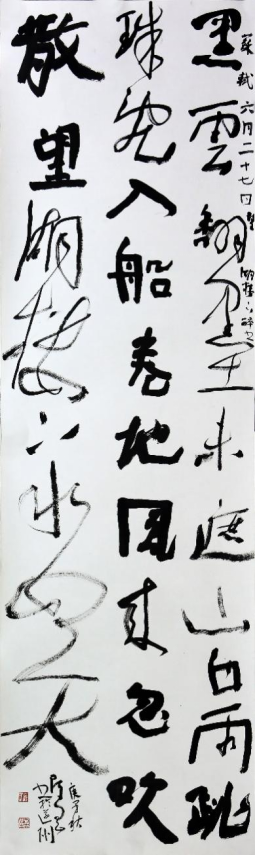 蘇軾六月二十七日望湖樓下醉書
黑雲翻墨未遮山白雨跳
珠亂入船卷地風來忽吹
散望湖樓下水如天
庚子秋